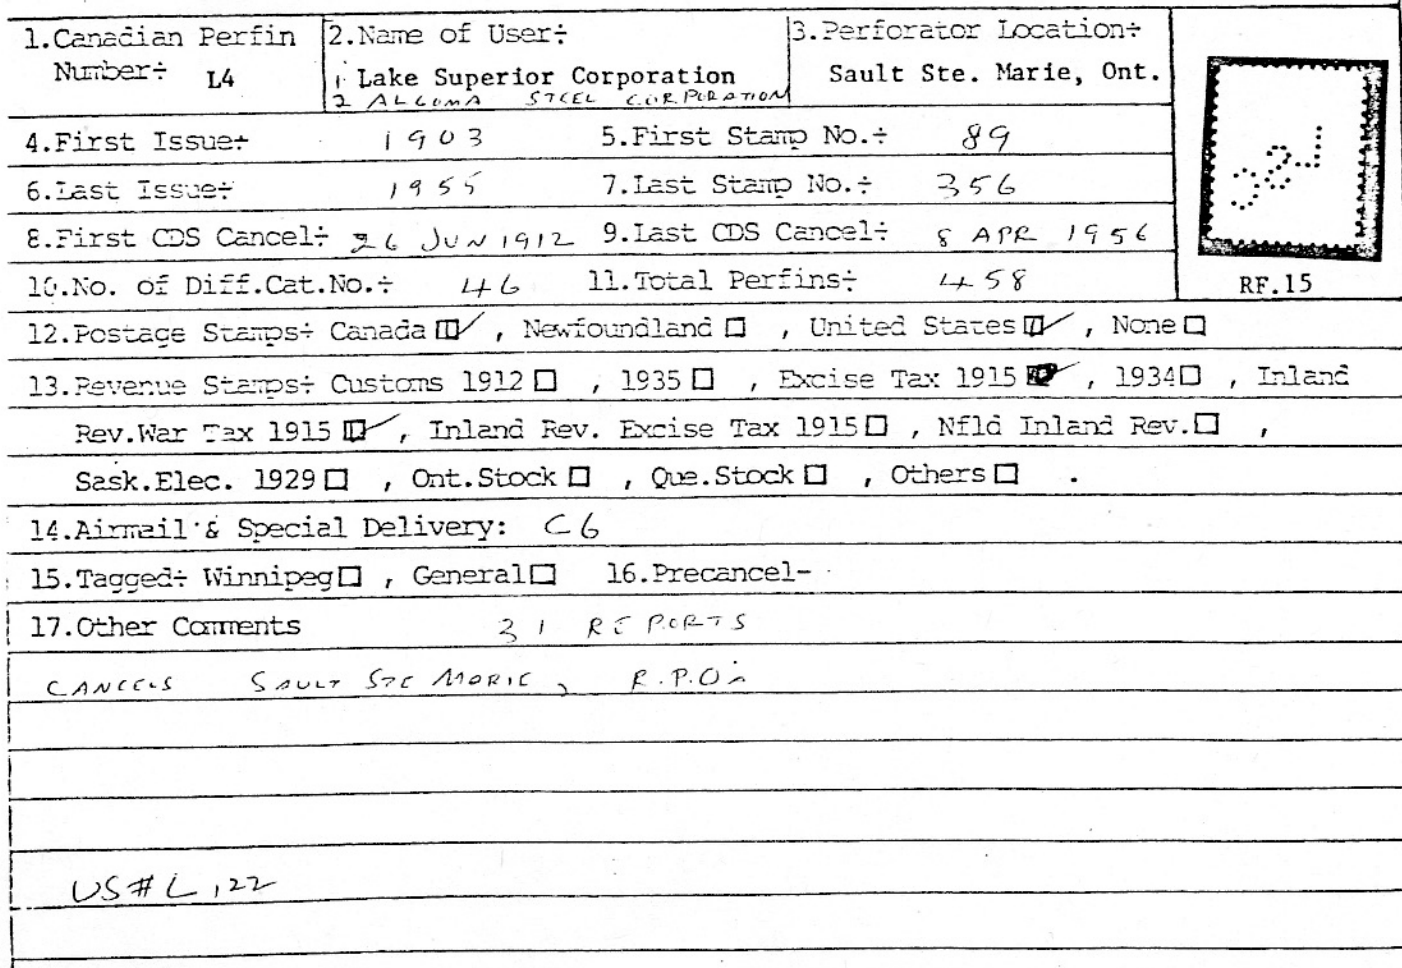 1.Canadian Perfin Number÷ L4
2.Name of User÷
1 Lake Superior Corporation
2 ALGOMA STEEL CORPORATION
3.Perforator Location÷
Sault Ste. Marie, Ont.
RF.15
4.First Issue÷ 1903 5.First Stamp No.÷ 89
6.Last Issue÷ 1955 7.Last Stamp No.÷ 356
8.First CDS Cancel÷ 26 JUN 1912 9.Last CDS Cancel÷ 8 APR 1956
10.No. of Diff.Cat.No.÷ 46 11.Total Perfins÷ 458
12.Postage Stamps÷ Canada ☑ , Newfoundland ☐ , United States ☑ , None ☐
13.Revenue Stamps÷ Customs 1912 ☐ , 1935 ☐ , Excise Tax 1915 ☑ , 1934 ☐ , Inland
Rev.War Tax 1915 ☑ , Inland Rev. Excise Tax 1915 ☐ , Nfld Inland Rev. ☐ ,
Sask.Elec. 1929 ☐ , Ont.Stock ☐ , Que.Stock ☐ , Others ☐ .
14.Airmail & Special Delivery: C6
15.Tagged÷ Winnipeg ☐ , General ☐ 16.Precancel-
17.Other Comments 31 REPORTS
CANCELS SAULT STE MARIE, R.P.O.
US # L 122